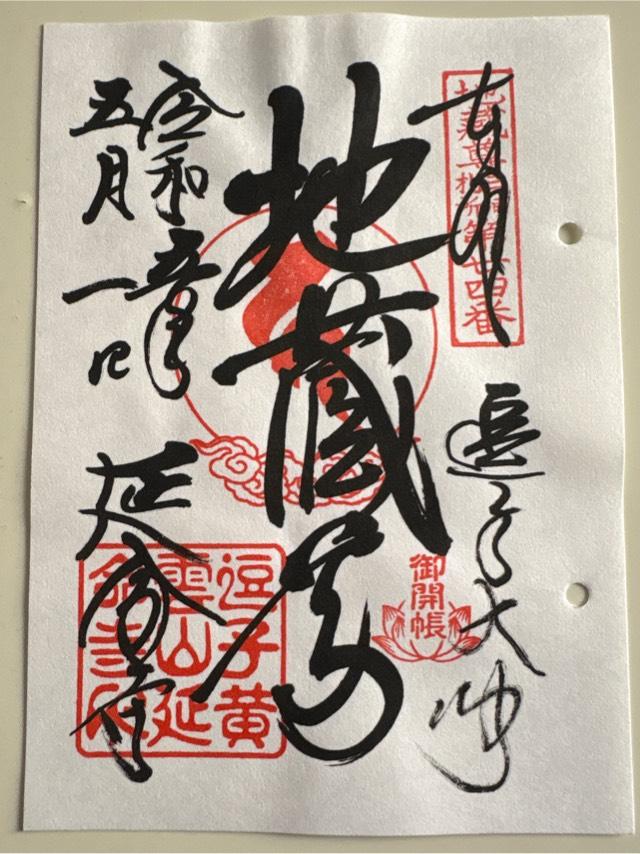 奉拝
地蔵尊札所第廿四番
逗子大師
御開帳
地蔵尊
令和五年
五月一日
延命寺
逗子黄
雲山延